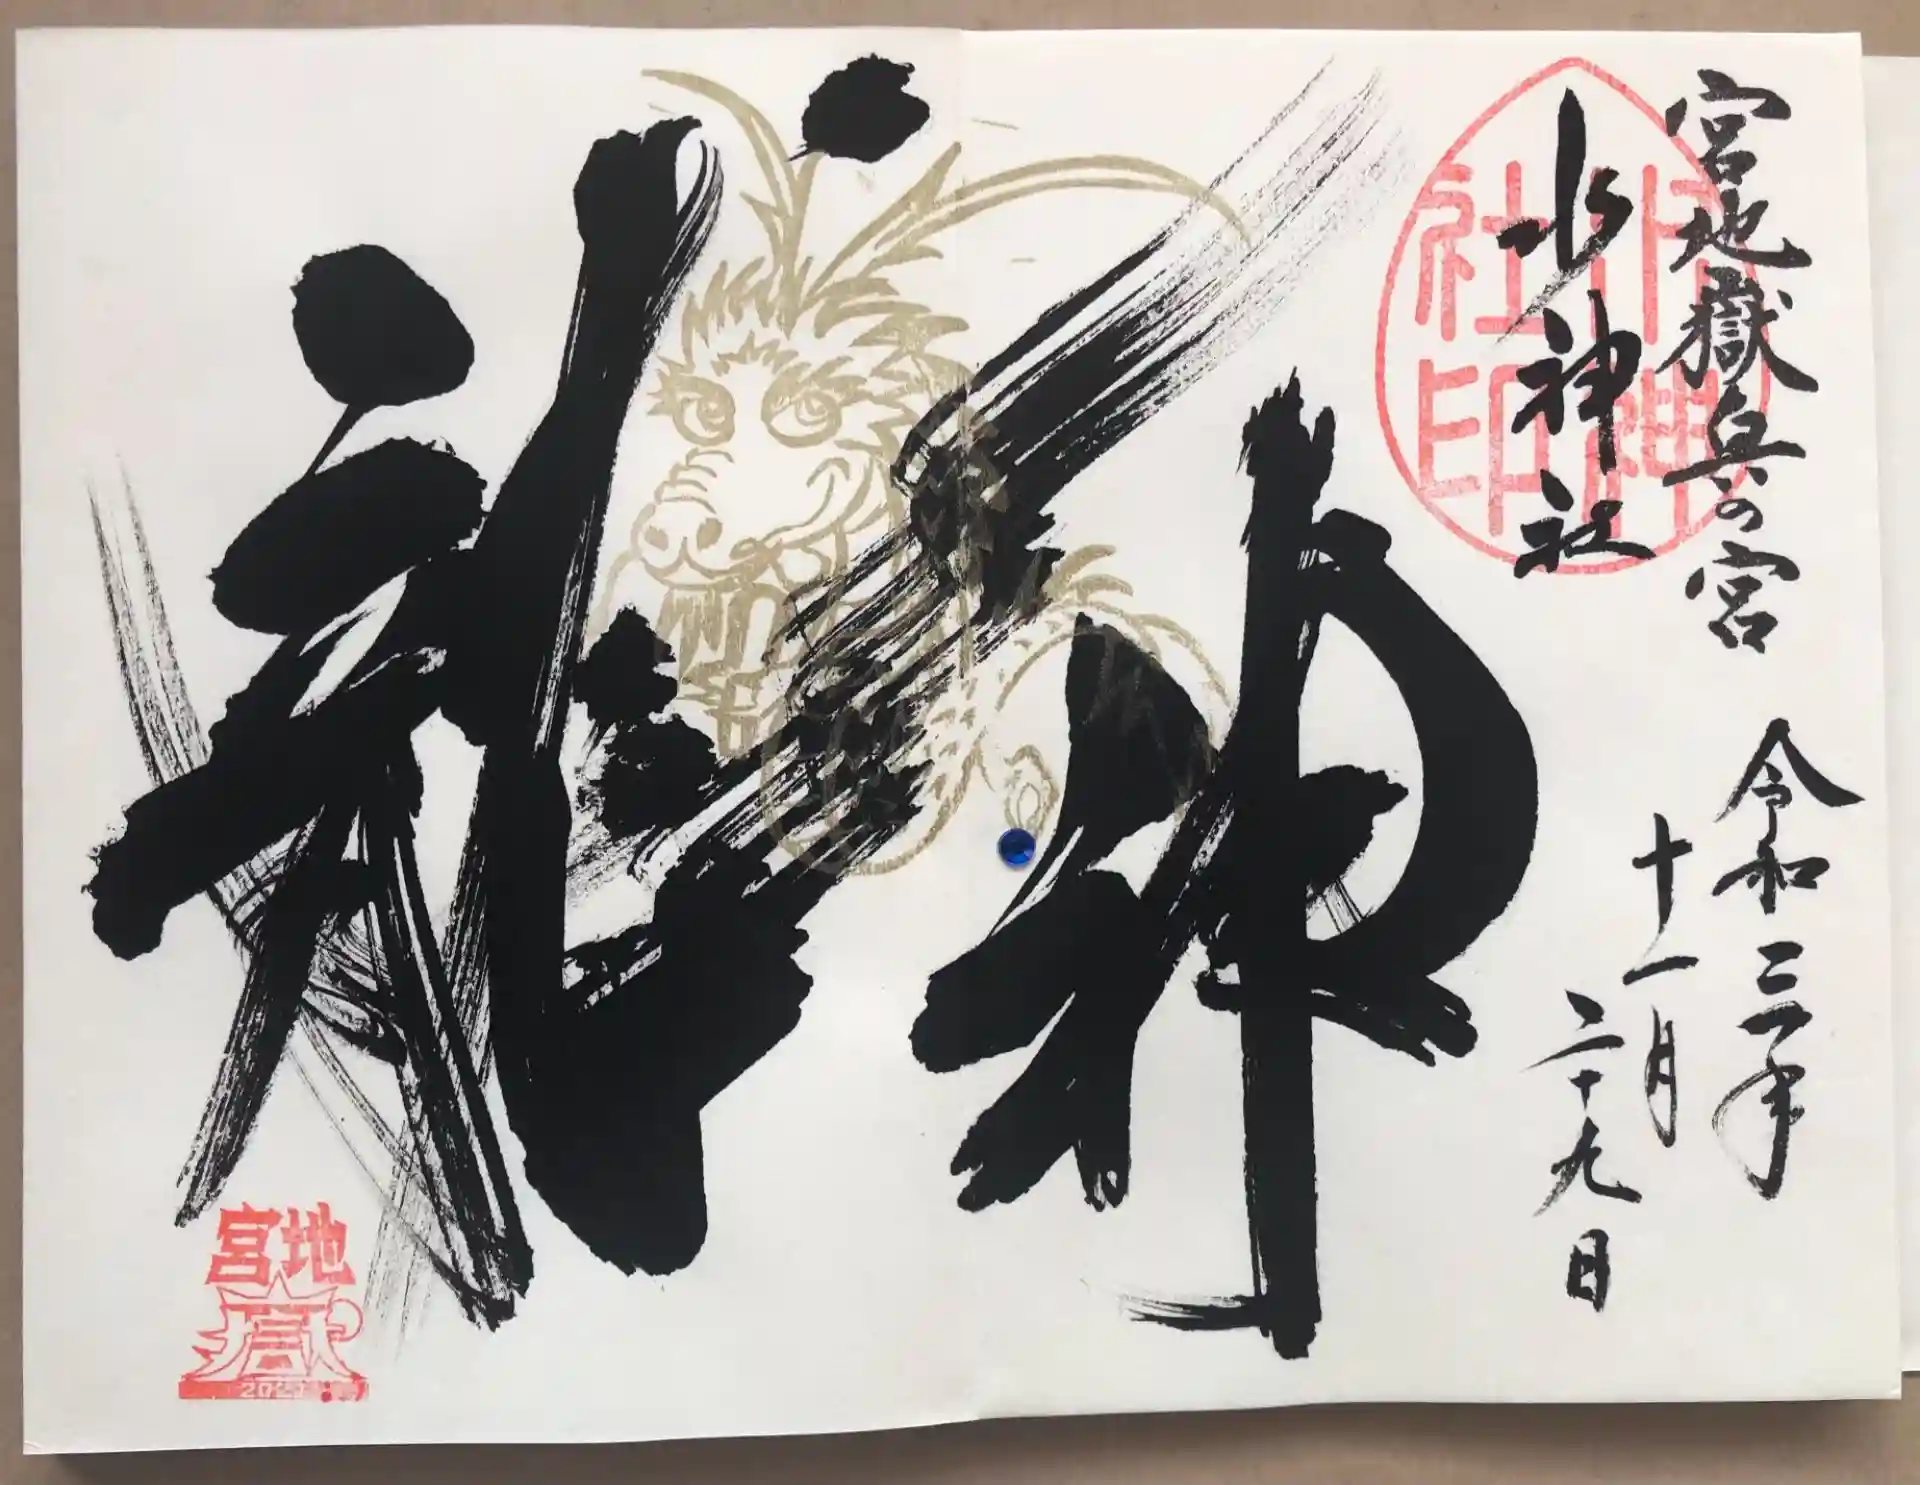 宮地嶽奥の宮
水神社
水神
社印
令和三年
十一月
二十九日
龍神
宮地
嶽
2021